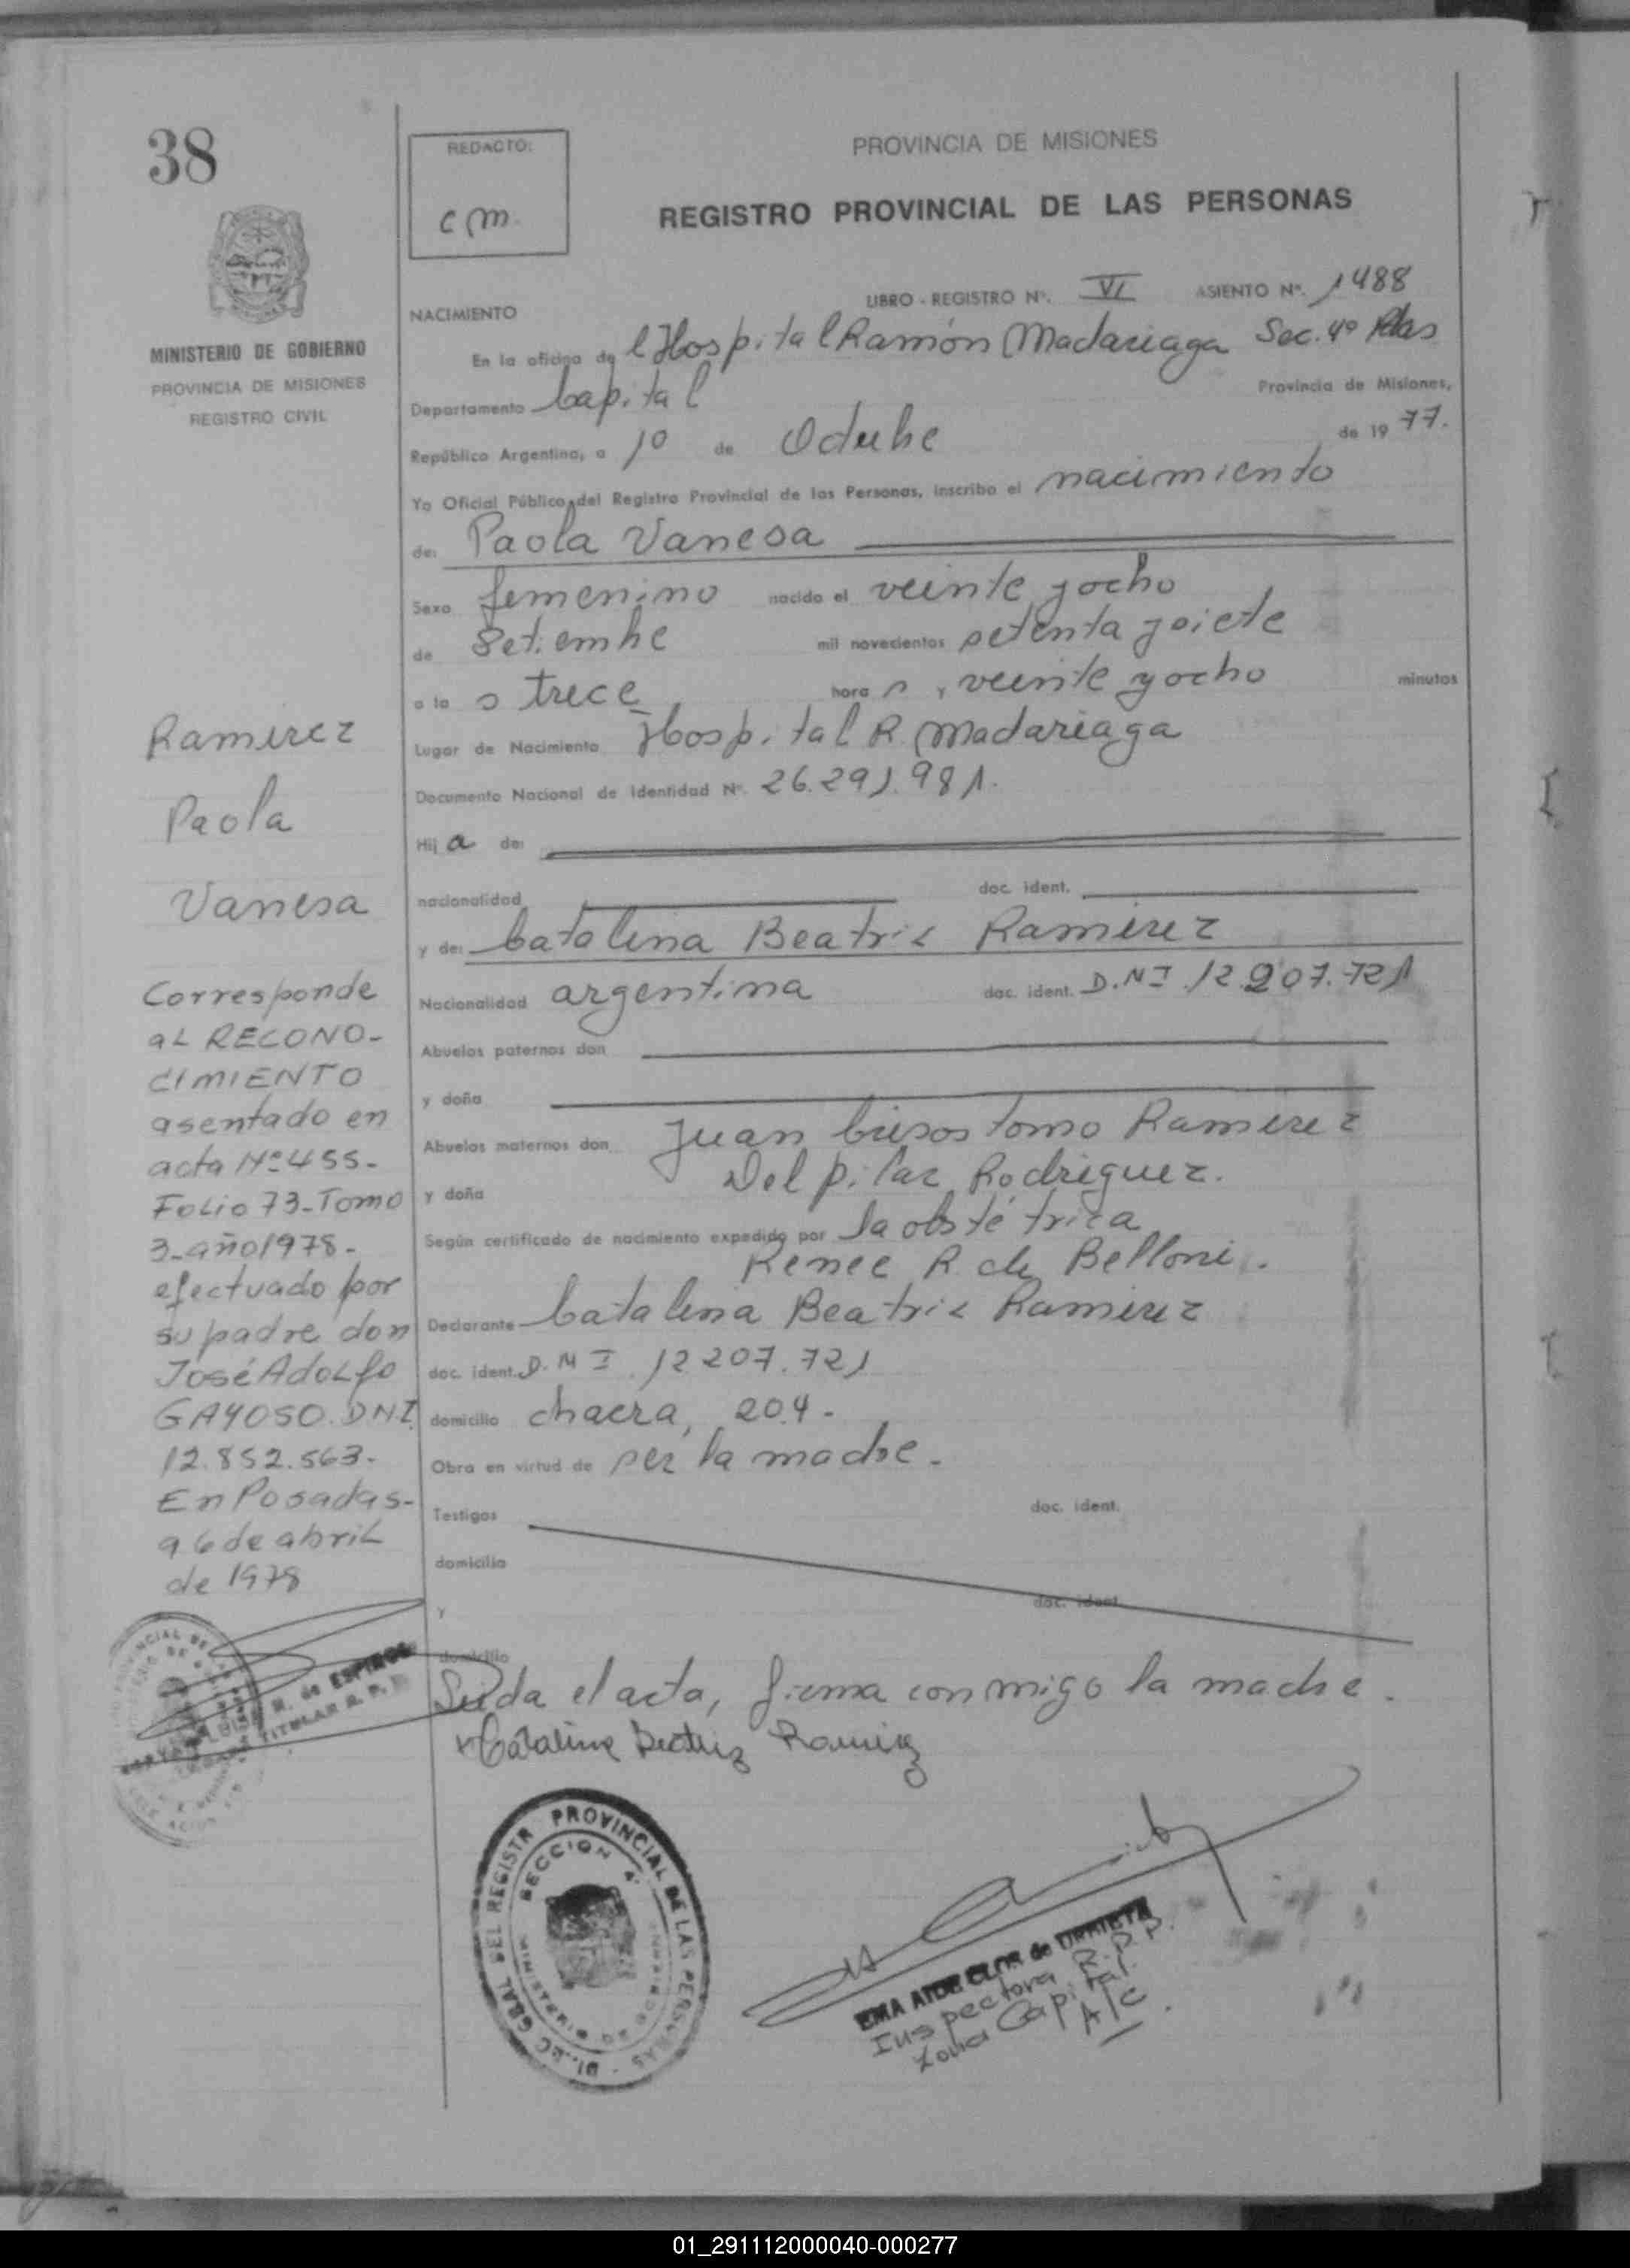 38
MINISTERIO DE GOBIERNO
PROVINCIA DE MISIONES
REGISTRO CIVIL
REDACTO:
cm.
PROVINCIA DE MISIONES
REGISTRO PROVINCIAL DE LAS PERSONAS
LIBRO - REGISTRO Nº. VI ASIENTO Nº. 1488
NACIMIENTO
En la oficina de l Hospital Ramón Madariaga Sec. 4º Pdas
Departamento Capital Provincia de Misiones,
República Argentina, a 10 de Octubre de 1977.
Yo Oficial Público del Registro Provincial de las Personas, inscribo el nacimiento
de: Paola Vanesa
Sexo femenino nacido el veinte y ocho
de Setiembre mil novecientos setenta y siete
a la s trece hora s y veinte y ocho minutos
Lugar de Nacimiento Hospital R. Madariaga
Documento Nacional de Identidad Nº. 26.291.981.
Hij a de:
nacionalidad doc. ident.
y de: Catalina Beatriz Ramirez
Nacionalidad argentina doc. ident. D.N.I. 12.207.721
Abuelos paternos don
y doña
Abuelos maternos don Juan Crisostomo Ramirez
y doña Del pilar Rodriguez.
Según certificado de nacimiento expedido por la obstétrica
Renee R. de Belloni.
Declarante Catalina Beatriz Ramirez
doc. ident. D.N.I. 12.207.721
domicilio chacra, 204.
Obra en virtud de ser la madre.
Testigos doc. ident.
domicilio
y doc. ident.
domicilio
Leida el acta, firma conmigo la madre.
Catalina Beatriz Ramirez
Ramirez
Paola
Vanesa
Corresponde
aL RECONO-
CIMIENTO
asentado en
acta Nº 455-
Folio 73-Tomo
3-año 1978-
efectuado por
su padre don
José Adolfo
GAYOSO. D.N.I.
12.852.563-
En Posadas-
a 6 de abril
de 1978
DIREC GRAL DEL REGISTR PROVINCIAL DE LAS PERSONAS
SECCION 4ª
EMA AIDE CLOR de URBIETA
Inspectora R.P.P.
Zona Capital
A/C.
01_291112000040-000277